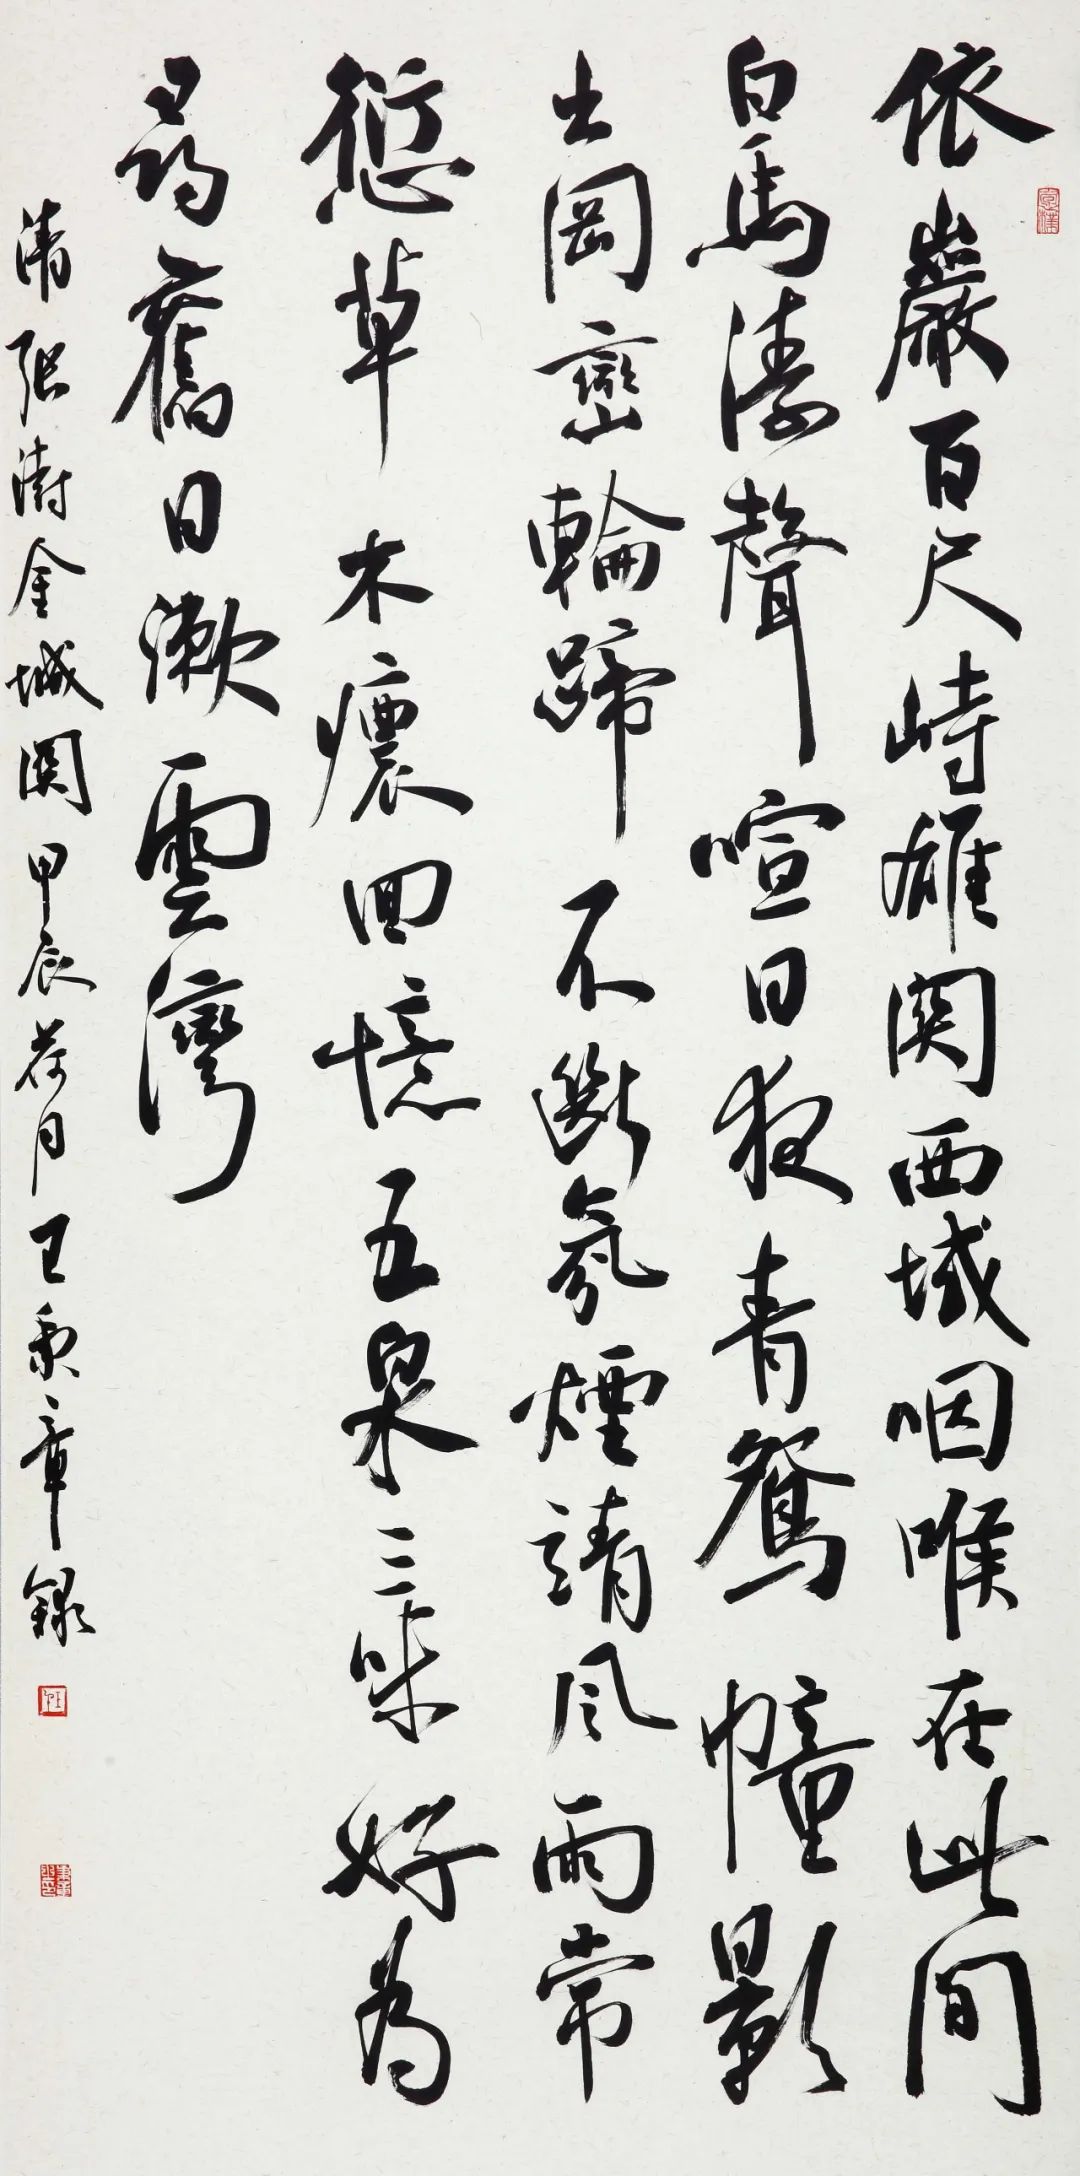 依巖百尺峙雄関西域咽喉在此間
白馬濤聲喧日夜青鴛幢影
出岡巒輪蹄不斷氛煙靖風雨常
愆草木瘝回憶五泉三味好為
尋舊日漱雲灣
清張澍金城関甲辰荷月王秉章錄